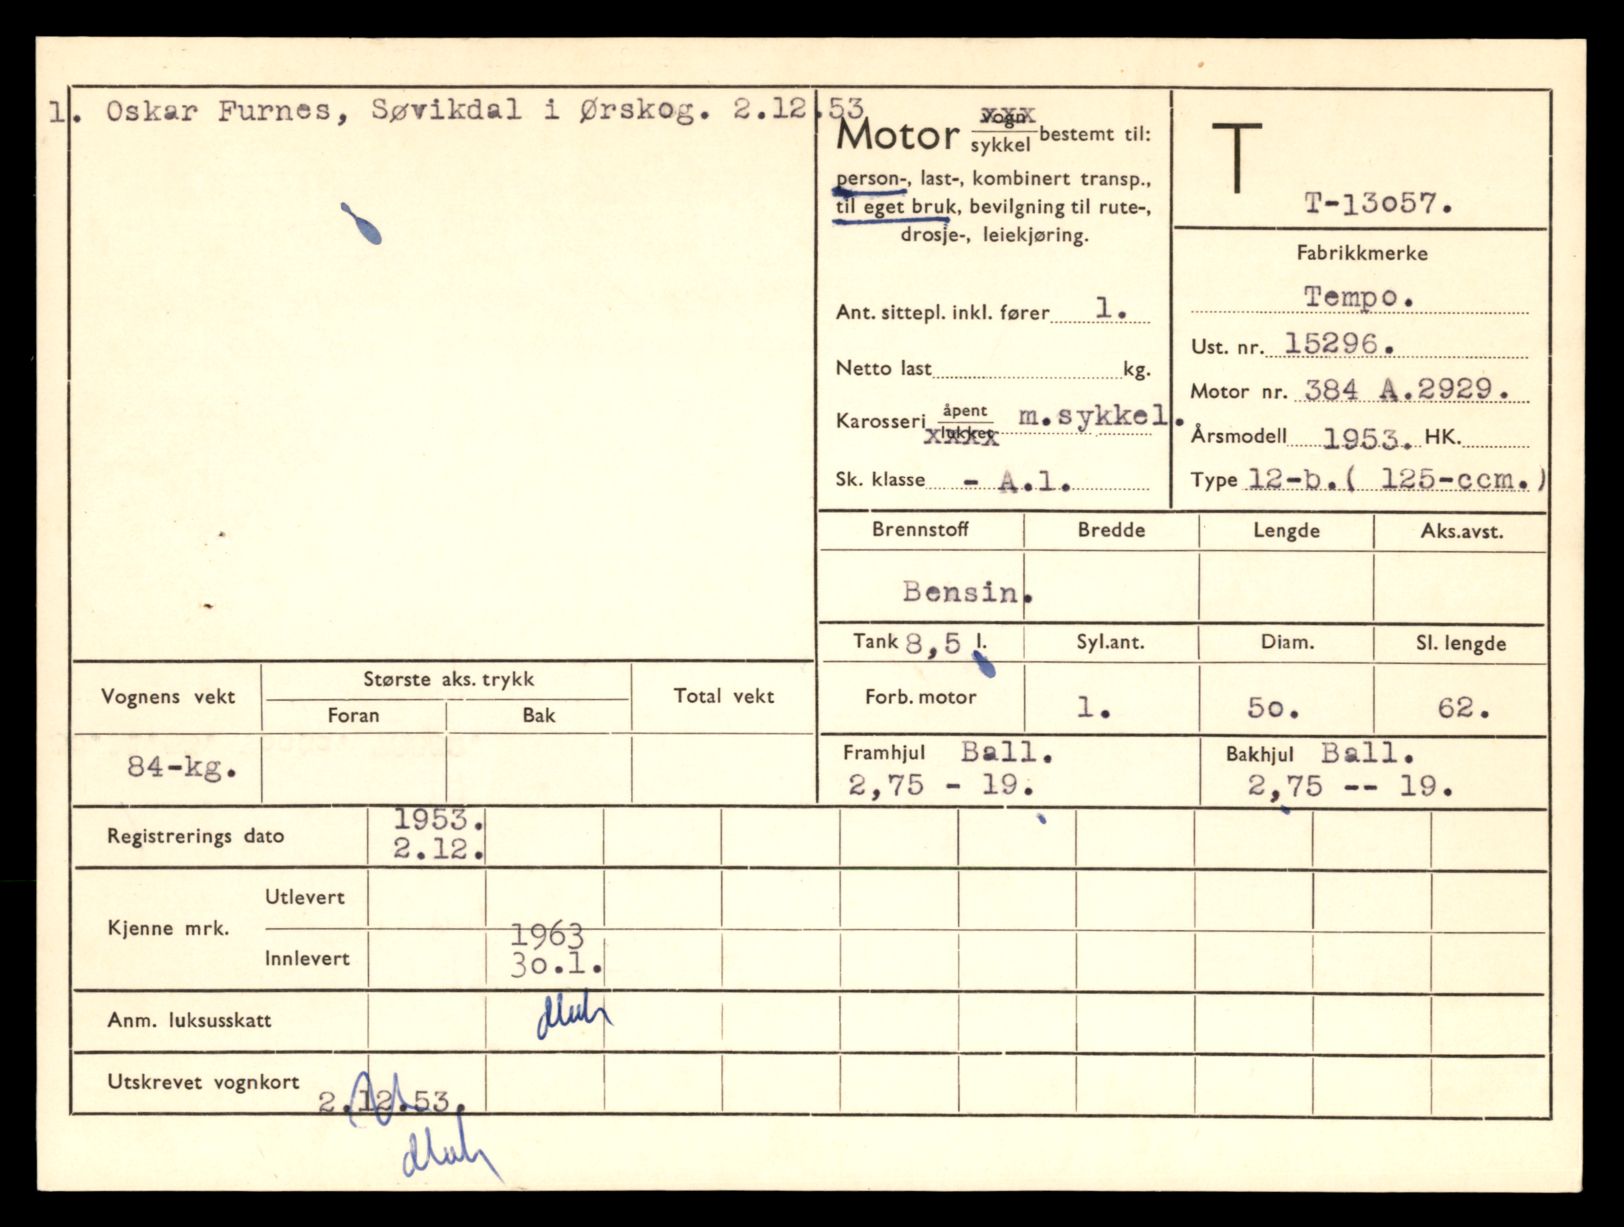 1. Oskar Furnes, Søvikdal i Ørskog. 2.12.53
Motor vogn sykkel bestemt til:
person-, last-, kombinert transp.,
til eget bruk, bevilgning til rute-,
drosje-, leiekjøring.
Ant. sittepl. inkl. fører 1.
Netto last kg.
Karosseri åpent lukket m.sykkel.
Sk. klasse - A.1.
T
T-13057.
Fabrikkmerke
Tempo.
Ust. nr. 15296.
Motor nr. 384 A.2929.
Årsmodell 1953. HK.
Type 12-b.( 125-ccm.)
Brennstoff Bredde Lengde Aks.avst.
Bensin.
Tank 8,5 l. Syl.ant. Diam. Sl. lengde
Forb. motor 1. 50. 62.
Framhjul Ball. Bakhjul Ball.
2,75 - 19. 2,75 -- 19.
Vognens vekt Største aks. trykk Total vekt
Foran Bak
84-kg.
Registrerings dato 1953.
2.12.
Kjenne mrk. Utlevert
Innlevert 1963
30.1.
Anm. luksusskatt
Utskrevet vognkort 2.12.53.